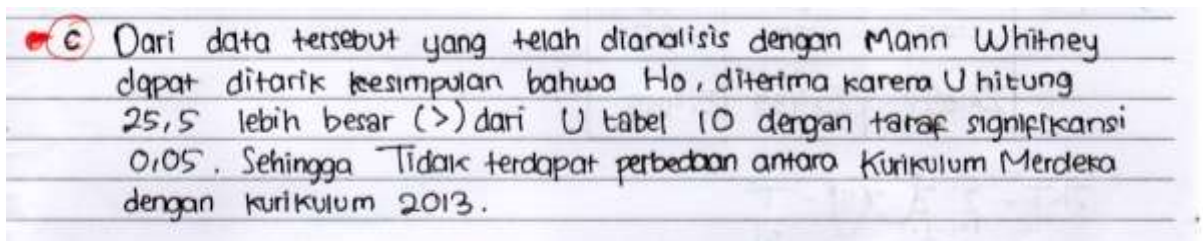 c Dari data tersebut yang telah dianalisis dengan Mann Whitney
dapat ditarik kesimpulan bahwa Ho, diterima karena U hitung
25,5 lebih besar (>) dari U tabel 10 dengan taraf signifikansi
0,05. Sehingga Tidak terdapat perbedaan antara Kurikulum Merdeka
dengan kurikulum 2013.